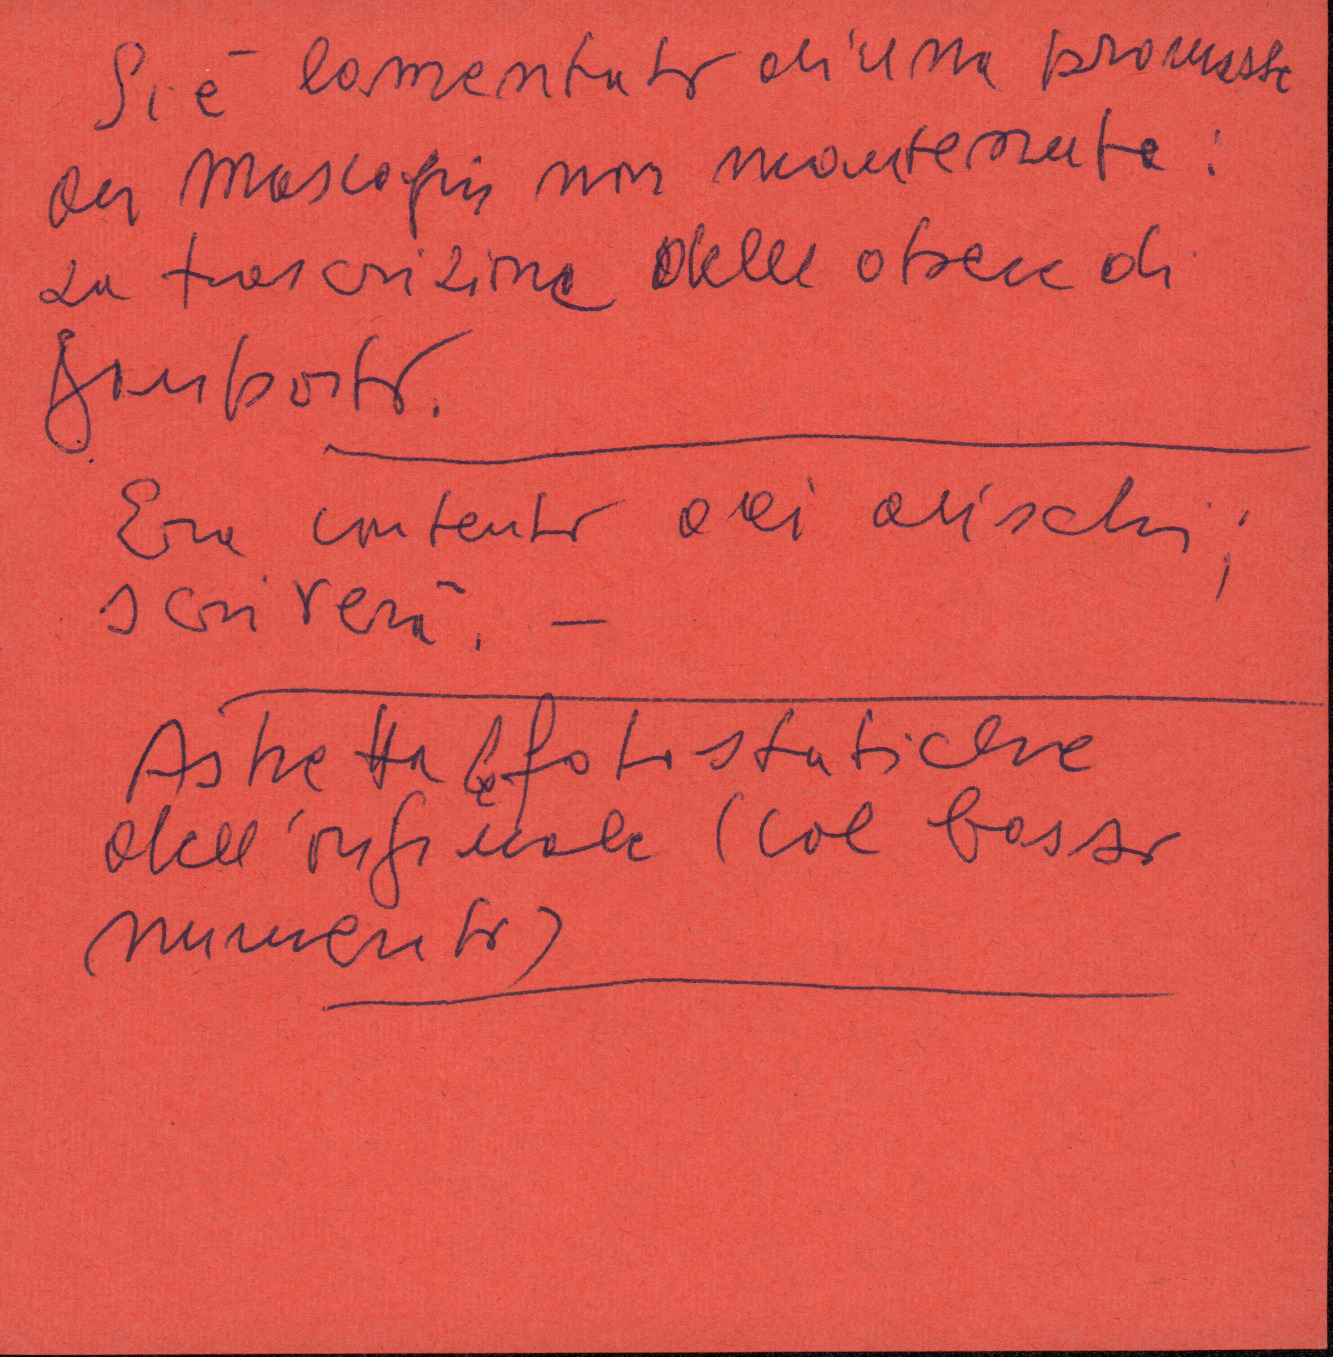 Si è lamentato di una promessa
di Mascagni non mantenuta:
la trascrizione delle opere di
Gomporto.
Era contento dei dischi;
scriverà. —
Aspetta le fotostatiche
dell'originale (col basso
numerato)